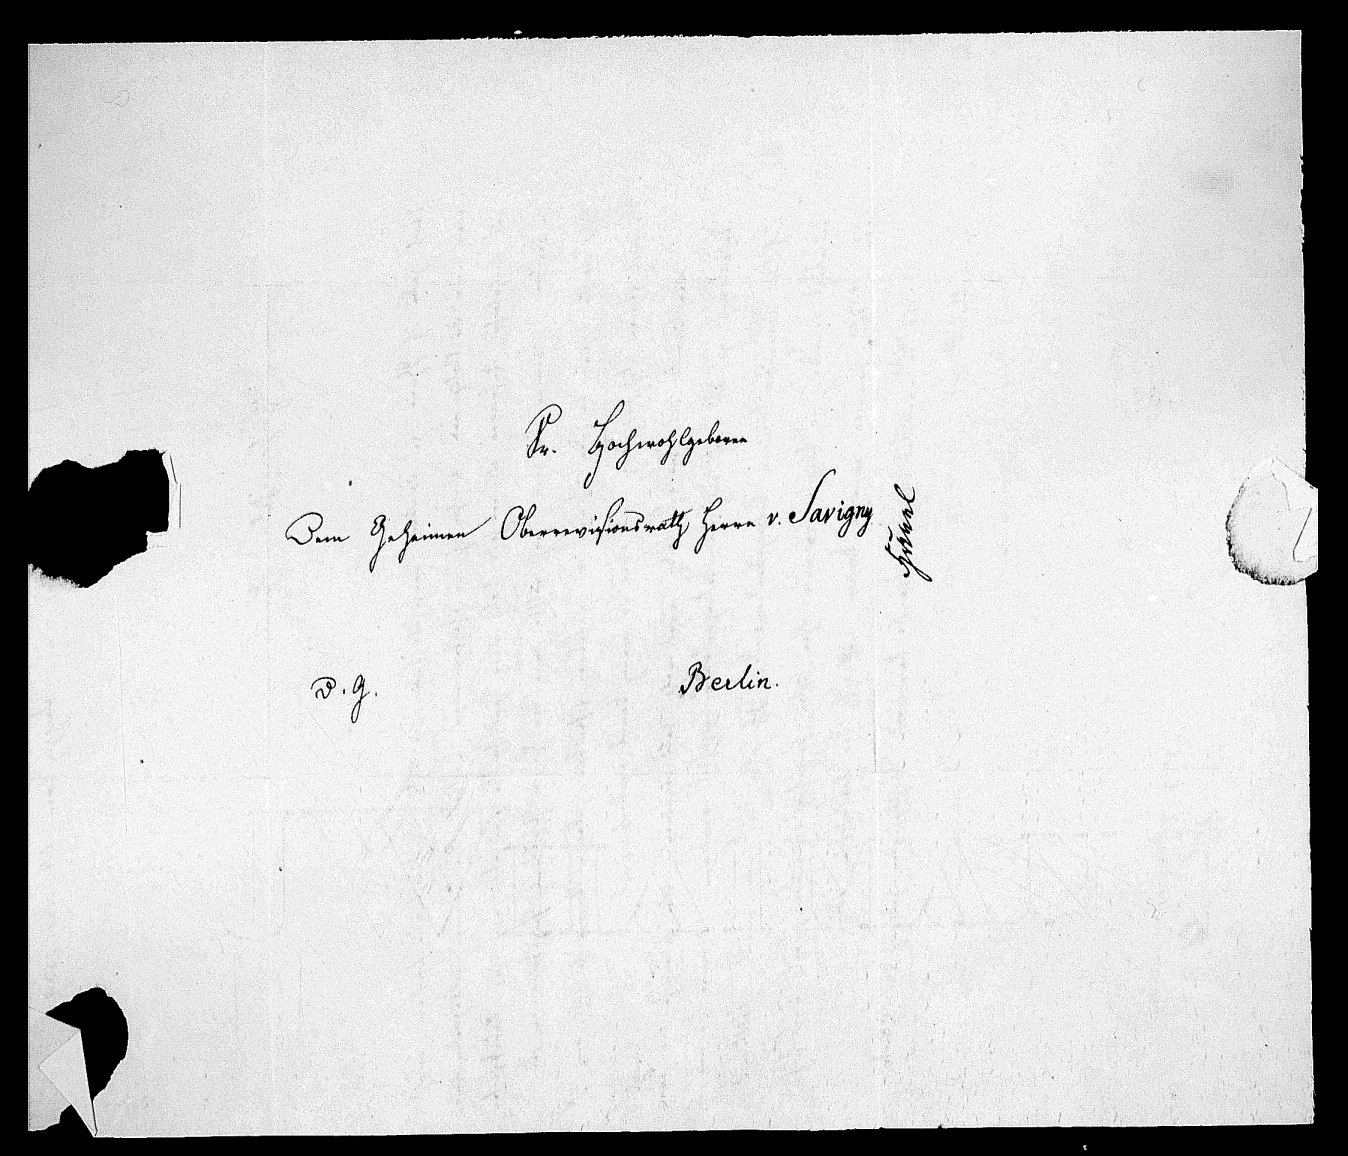 Sr. Hochwohlgeboren
Dem Geheimen Oberrevisionsrath Herrn v. Savigny
Hänel
D. G.
Berlin.